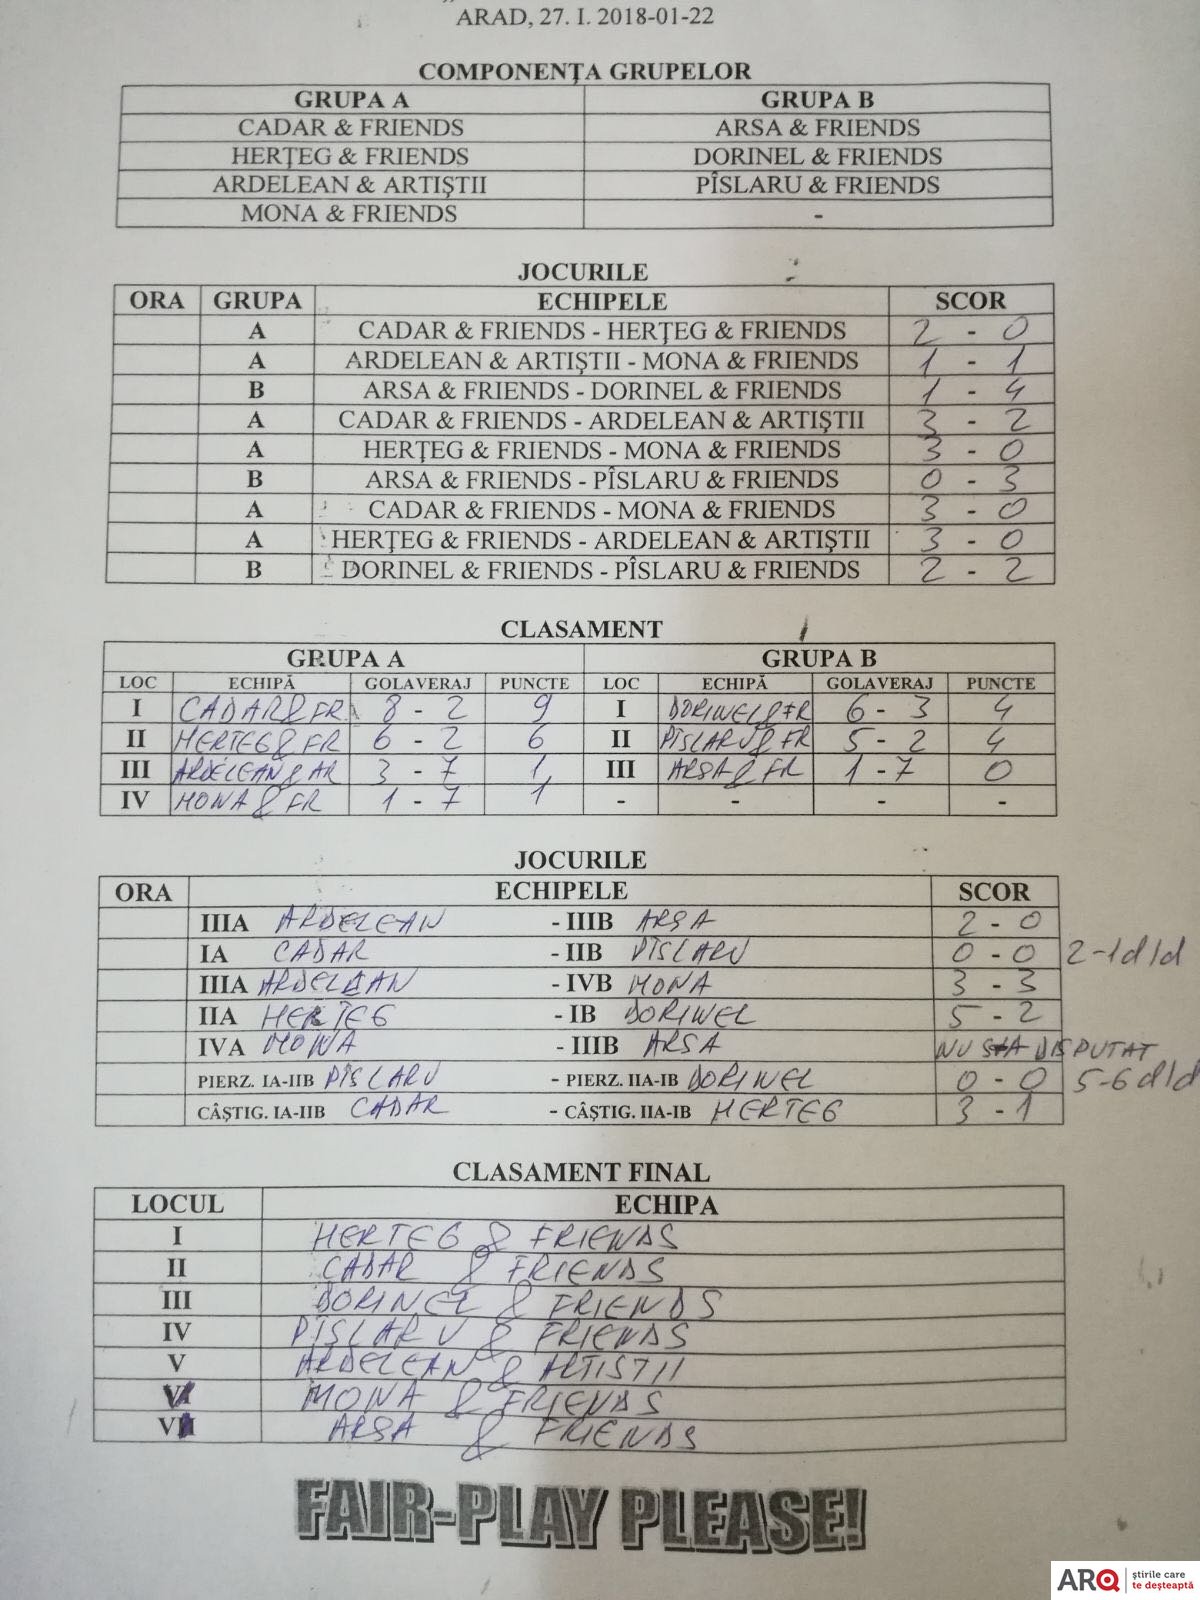 ARAD, 27. I. 2018-01-22
COMPONENȚA GRUPELOR
GRUPA A GRUPA B
CADAR & FRIENDS ARSA & FRIENDS
HERȚEG & FRIENDS DORINEL & FRIENDS
ARDELEAN & ARTIȘTII PÎSLARU & FRIENDS
MONA & FRIENDS -
JOCURILE
ORA GRUPA ECHIPELE SCOR
A CADAR & FRIENDS - HERȚEG & FRIENDS 2 - 0
A ARDELEAN & ARTIȘTII - MONA & FRIENDS 1 - 1
B ARSA & FRIENDS - DORINEL & FRIENDS 1 - 4
A CADAR & FRIENDS - ARDELEAN & ARTIȘTII 3 - 2
A HERȚEG & FRIENDS - MONA & FRIENDS 3 - 0
B ARSA & FRIENDS - PÎSLARU & FRIENDS 0 - 3
A CADAR & FRIENDS - MONA & FRIENDS 3 - 0
A HERȚEG & FRIENDS - ARDELEAN & ARTIȘTII 3 - 0
B DORINEL & FRIENDS - PÎSLARU & FRIENDS 2 - 2
CLASAMENT
GRUPA A GRUPA B
LOC ECHIPĂ GOLAVERAJ PUNCTE LOC ECHIPĂ GOLAVERAJ PUNCTE
I CADAR & FR 8 - 2 9 I DORINEL & FR 6 - 3 4
II HERTEG & FR 6 - 2 6 II PÎSLARU & FR 5 - 2 4
III ARDELEAN & AR 3 - 7 1 III ARSA & FR 1 - 7 0
IV MONA & FR 1 - 7 1 - - - -
JOCURILE
ORA ECHIPELE SCOR
IIIA ARDELEAN - IIIB ARSA 2 - 0
IA CADAR - IIB PÎSLARU 0 - 0 2-1 d/d
IIIA ARDELEAN - IVB MONA 3 - 3
IIA HERTEG - IB DORINEL 5 - 2
IVA MONA - IIIB ARSA NU S-A DISPUTAT
PIERZ. IA-IIB PÎSLARU - PIERZ. IIA-IB DORINEL 0 - 0 5-6 d/d
CÂȘTIG. IA-IIB CADAR - CÂȘTIG. IIA-IB HERTEG 3 - 1
CLASAMENT FINAL
LOCUL ECHIPA
I HERTEG & FRIENDS
II CADAR & FRIENDS
III DORINEL & FRIENDS
IV PÎSLARU & FRIENDS
V ARDELEAN & ARTISTII
VI MONA & FRIENDS
VII ARSA & FRIENDS
FAIR-PLAY PLEASE!
ARQ știrile care
te deșteaptă